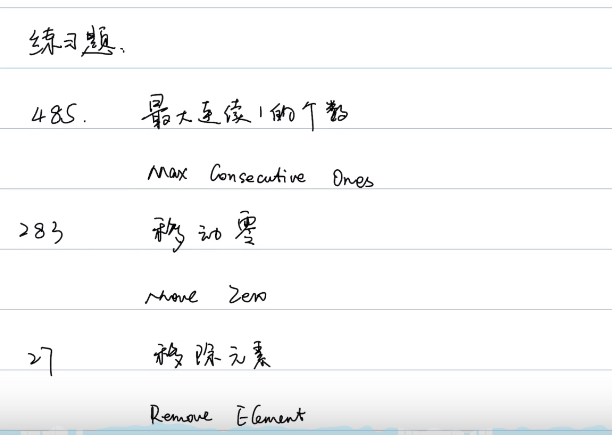 练习题、
485. 最大连续1的个数
Max Consecutive Ones
283 移动零
Move Zero
27 移除元素
Remove Element